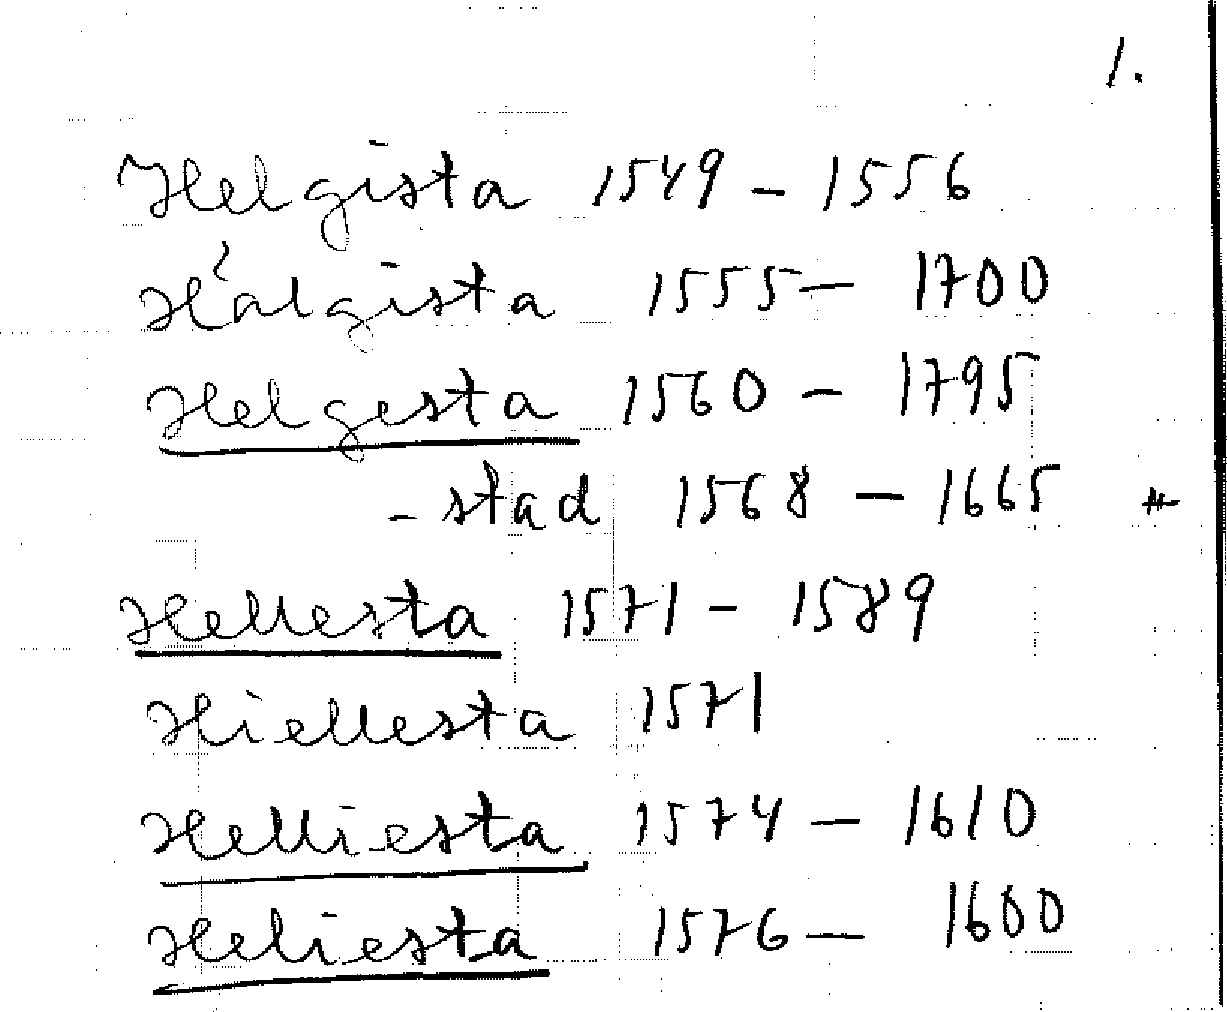 1.
Helgista 1549 - 1556
Hälgista 1555 - 1700
Helgesta 1560 - 1795
- stad 1568 - 1665 #
Hellesta 1571 - 1589
Hiellesta 1571
Helliesta 1574 - 1610
Heliesta 1576 - 1600